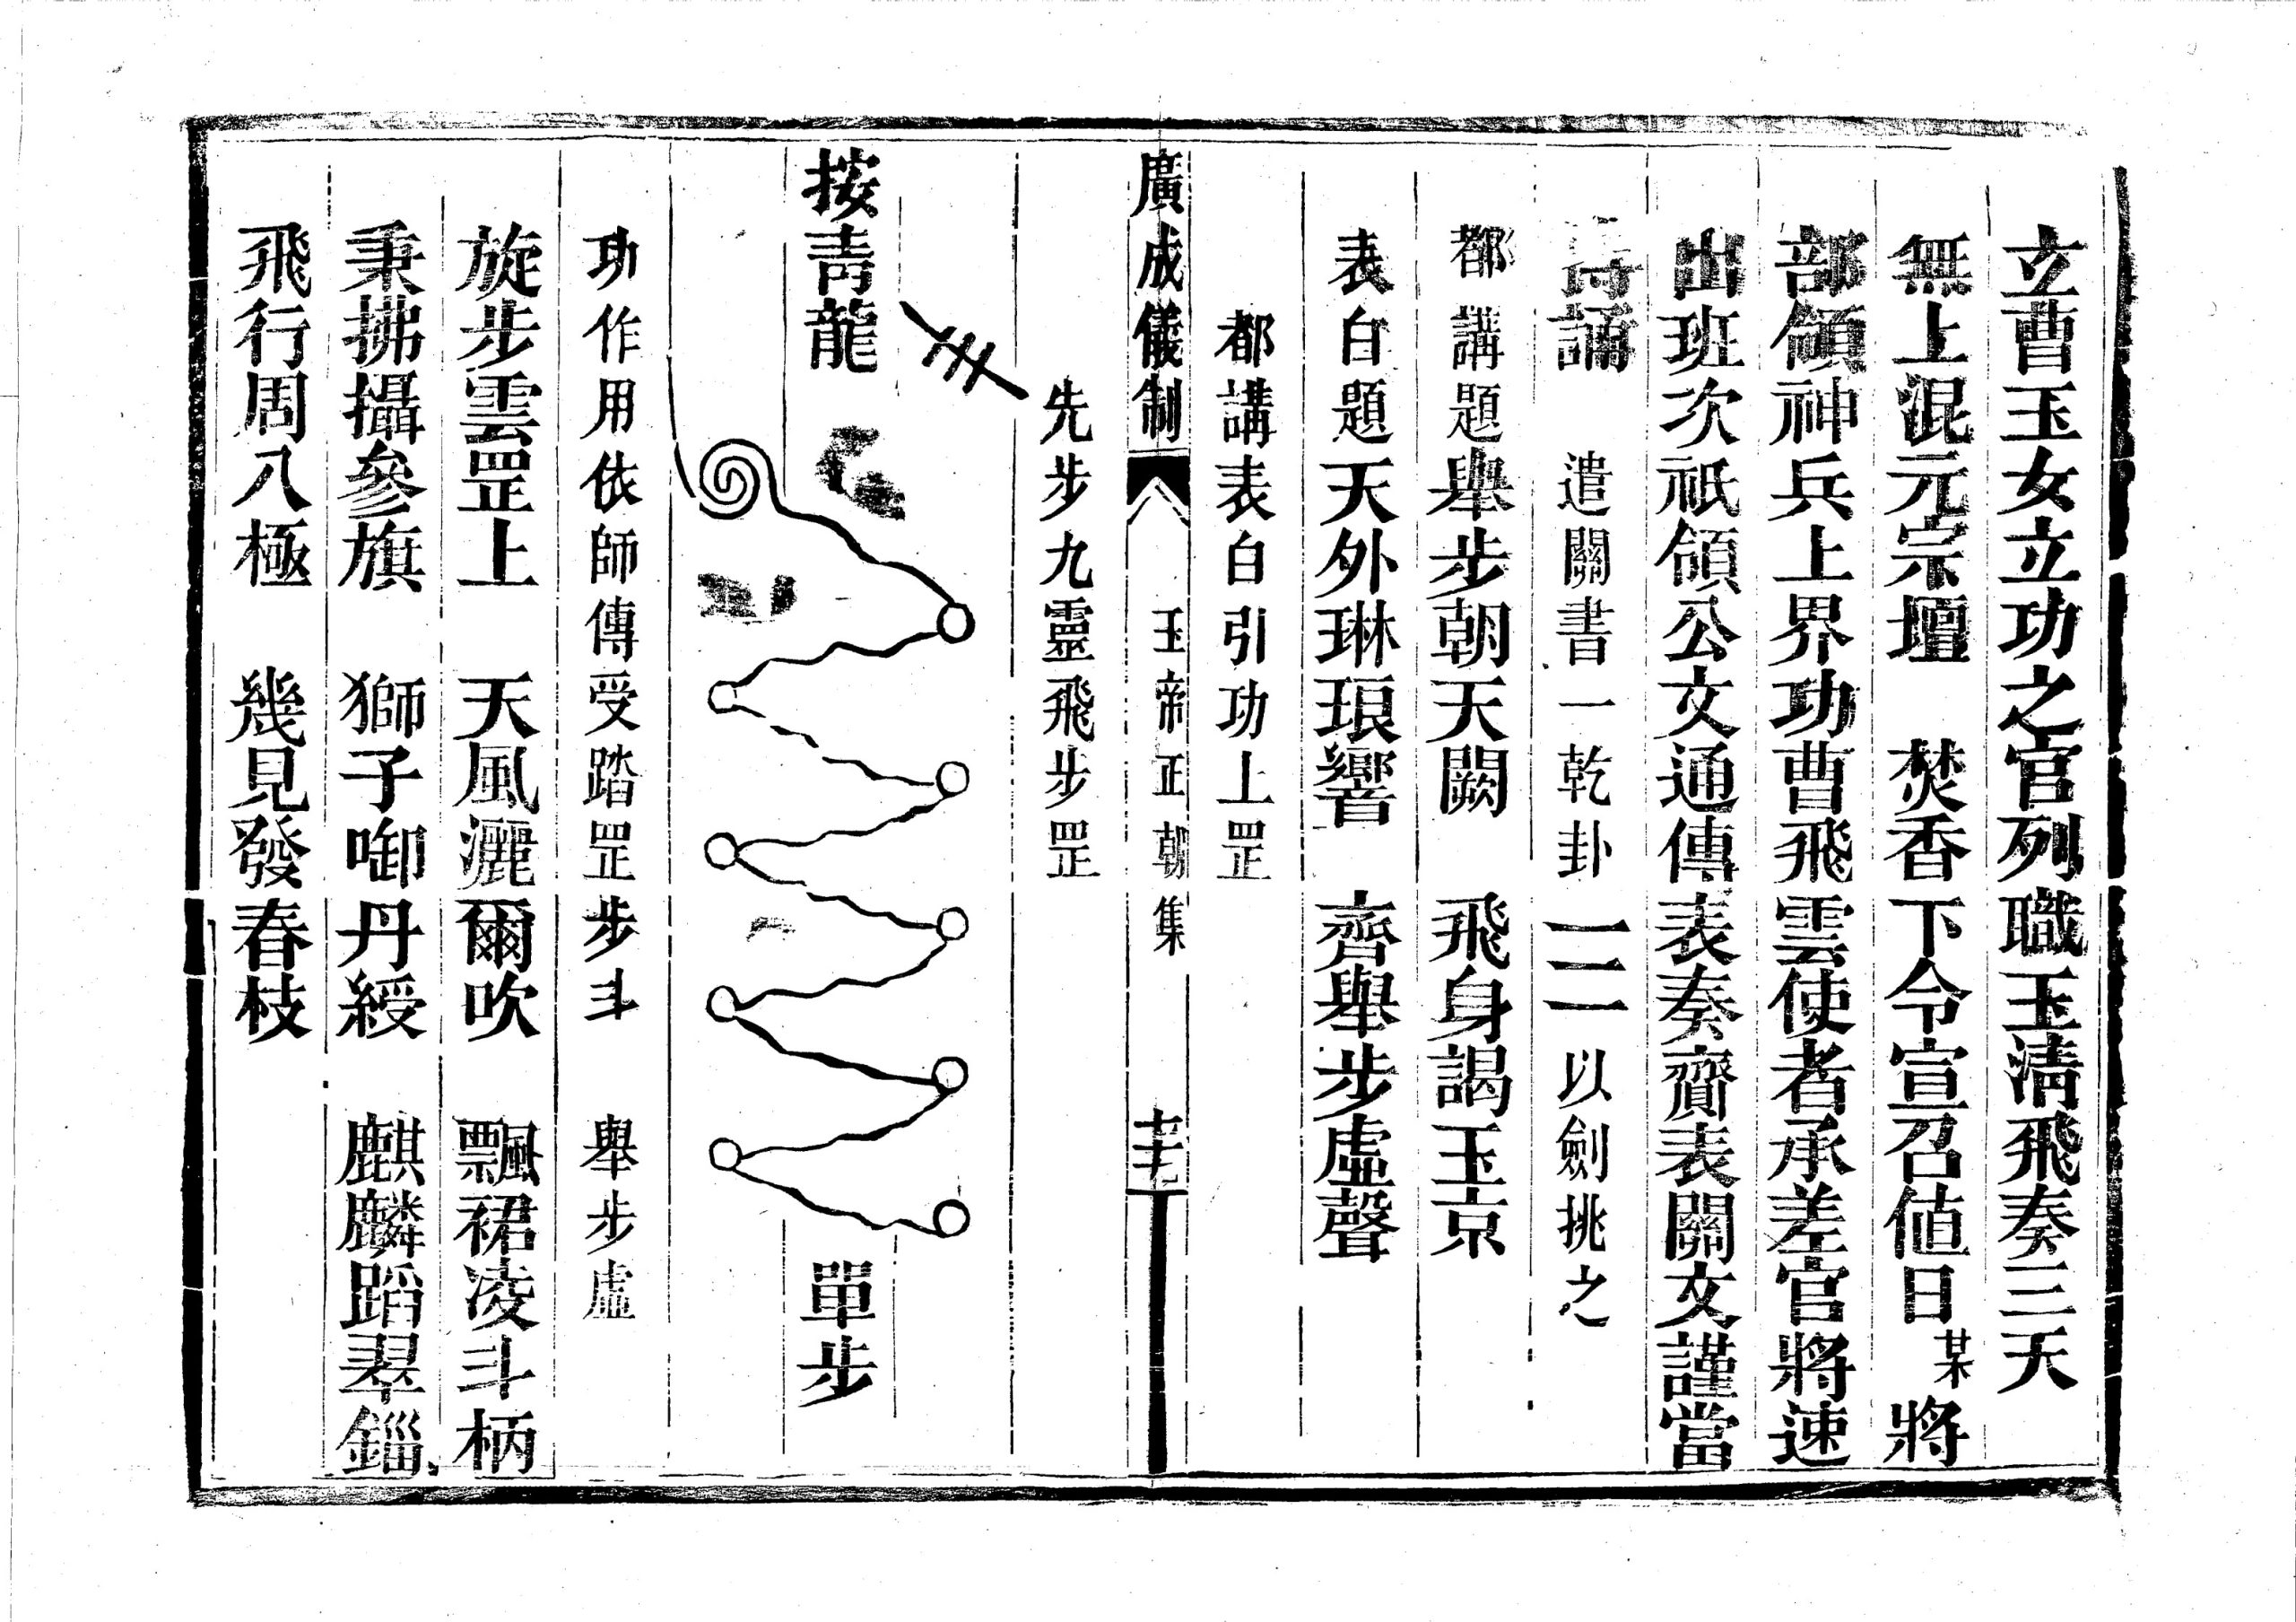 立曹玉女立功之官列職玉清飛奏三天
無上混元宗壇　焚香下令宣召值日某將
部領神兵上界功曹飛雲使者承差官將速
出班次祇領公文通傳表奏齎表關文謹當
誦　遣關書一乾卦☰以劍挑之
都講題舉步朝天闕　飛身謁玉京
表白題天外琳琅響　齊舉步虛聲
都講表白引功上罡
廣成儀制　玉帝正朝集
先步九靈飛步罡
按青龍　單步
功作用依師傳受踏罡步斗　舉步虛
旋步雲罡上　天風灑爾吹　飄裙凌斗柄
秉拂攝參旗　獅子啣丹綬　麒麟蹈翠錙
飛行周八極　幾見發春枝